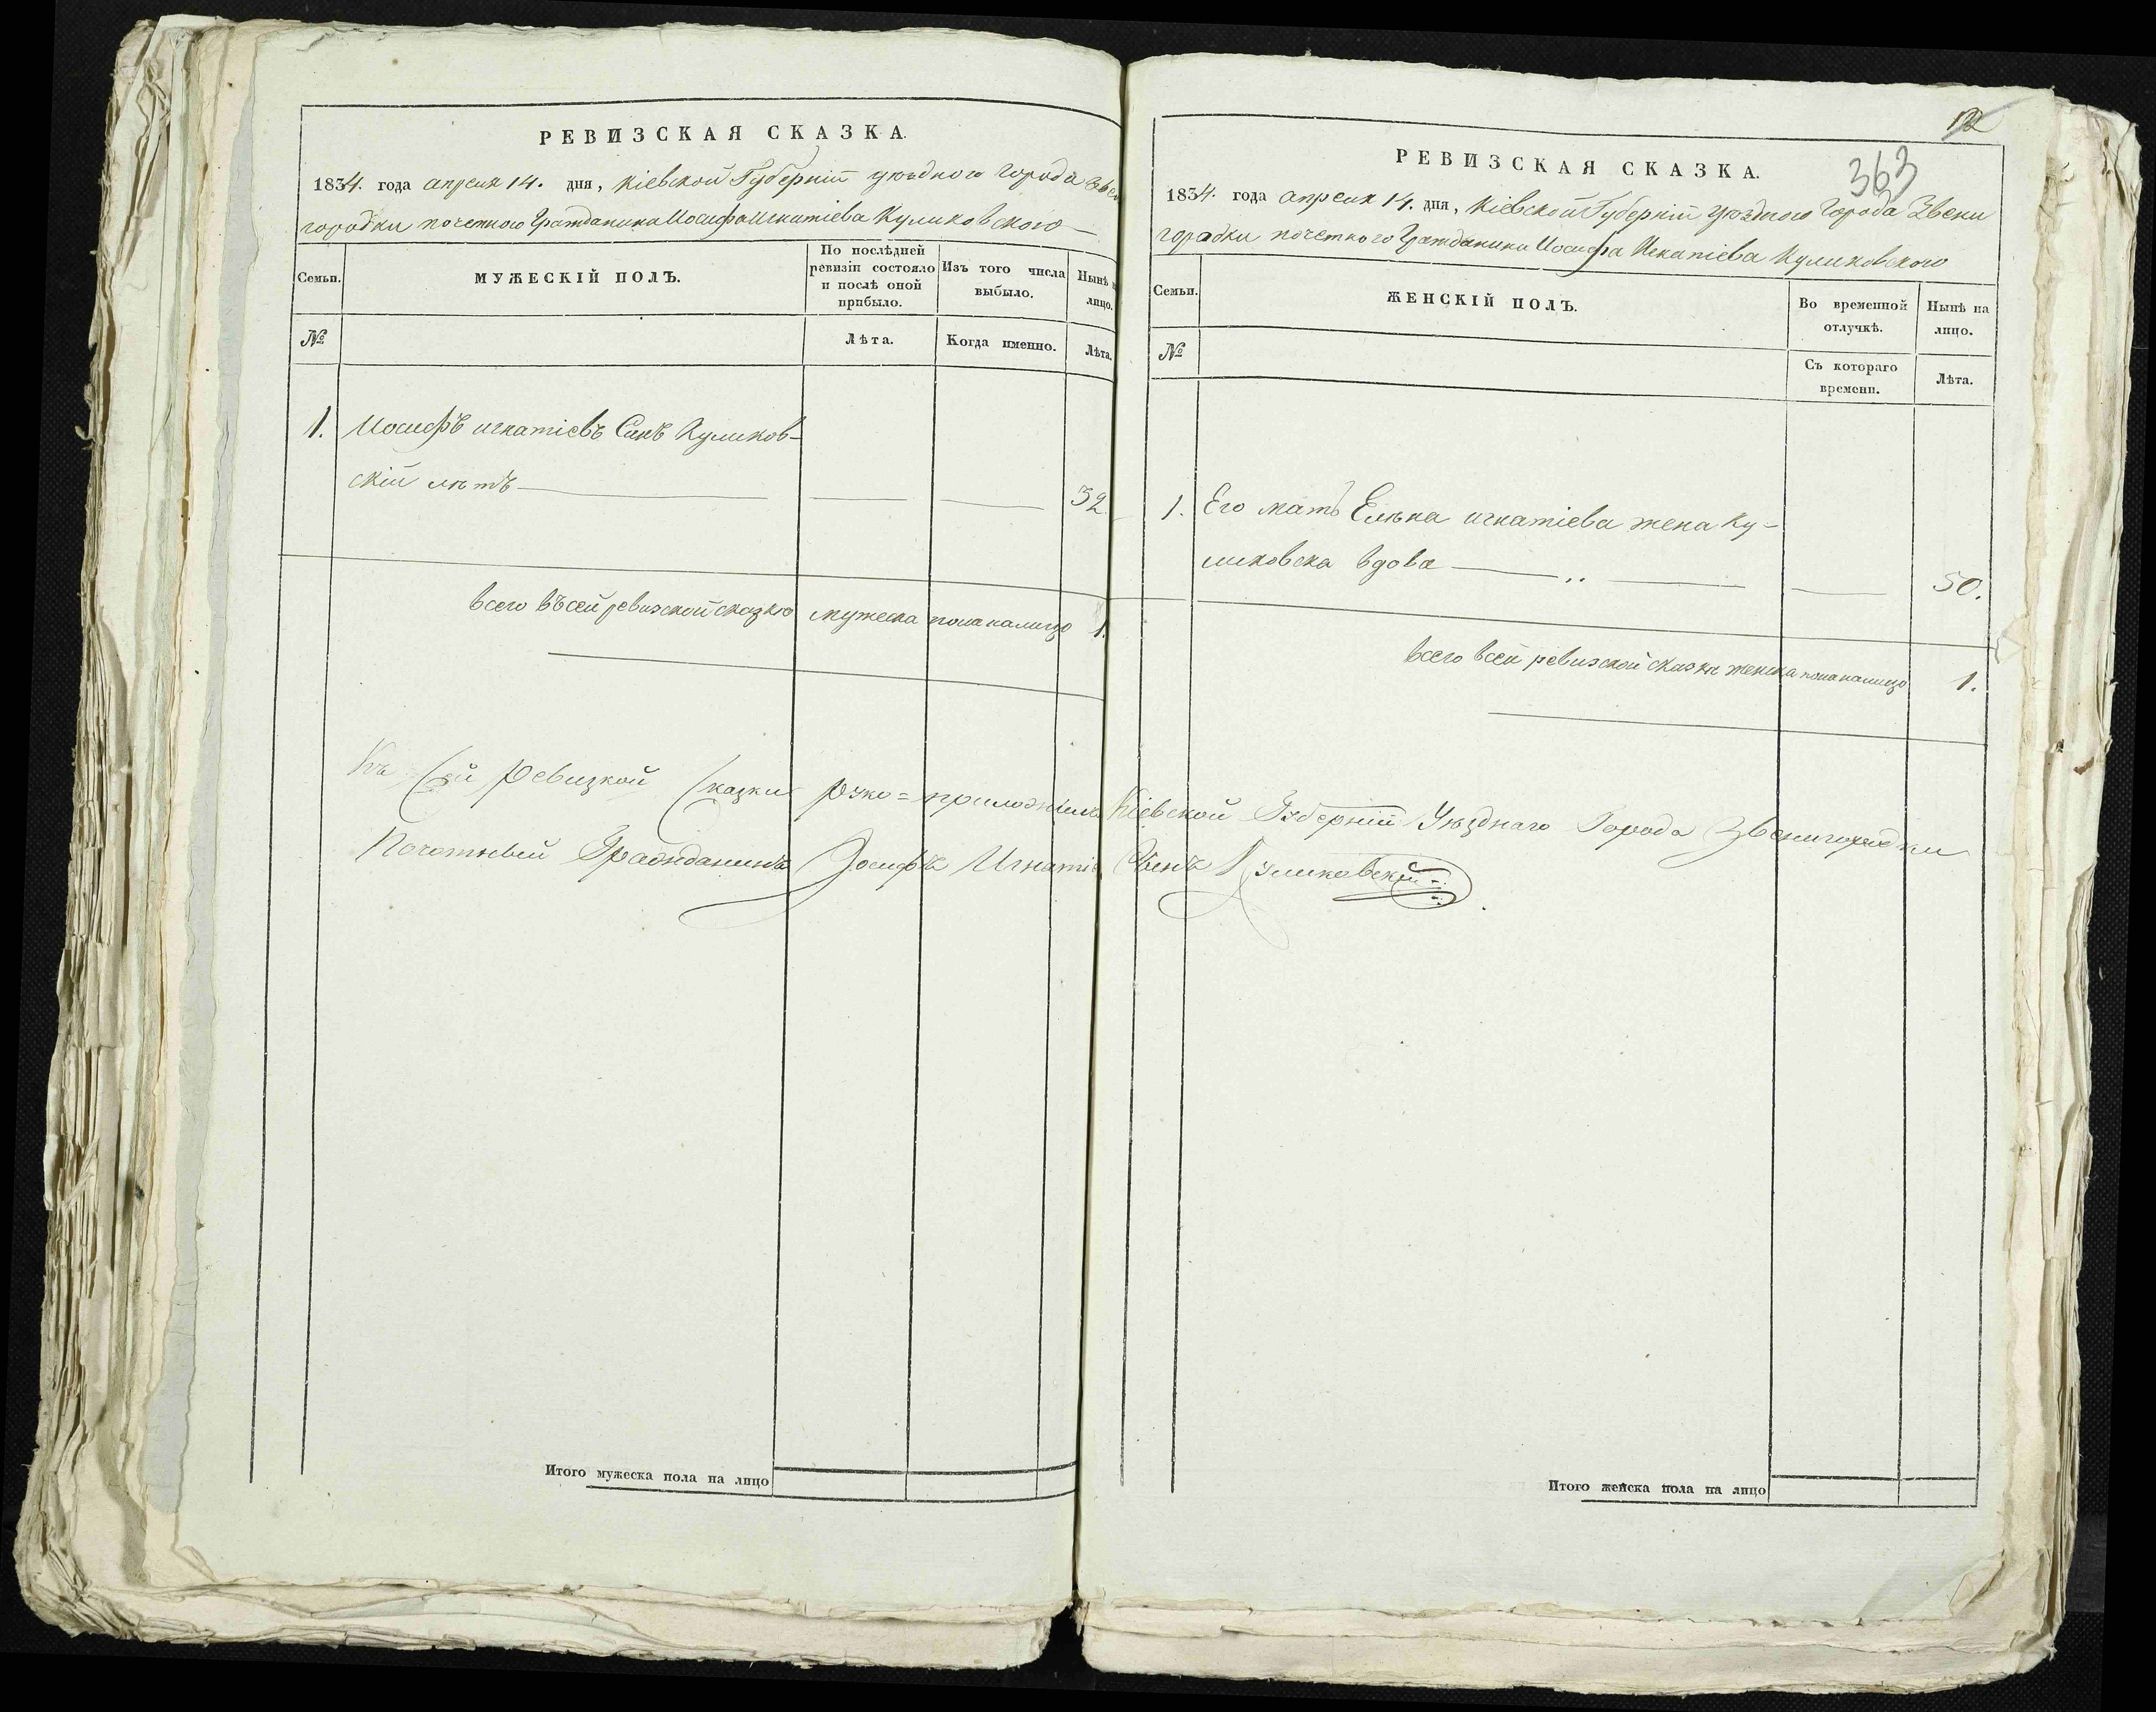 РЕВИЗСКАЯ СКАЗКА.
1834. года апреля 14. дня, Кіевской Губерніи уѣздного города Звени
городки почетного Гражданина Иосифа Игнатіева Куликовского
Семьи.
МУЖЕСКІЙ ПОЛЪ.
По послѣдней ревизіи состояло и послѣ оной прибыло.
Изъ того числа выбыло.
Нынѣ на лицо.
№
Лѣта.
Когда именно.
Лѣта.
1. Иосифъ игнатіевъ Сынъ Куликов-
скій лѣтъ 32.
всего въ сей ревизской сказкѣ мужеска пола налицо 1.
Къ Сей Ревизкой Сказки руко=приложилъ Кіевской Губерніи Уѣзднаго Города Звенигородки
Почотный Гражданинъ Іосифъ Игнатіе Сынъ Куликовскій
Итого мужеска пола на лицо
12
363
РЕВИЗСКАЯ СКАЗКА.
1834. года апреля 14. дня, Кіевской Губерніи уѣздного Города Звени
городки почетного Гражданина Иосифа Игнатіева Куликовского
Семьи.
ЖЕНСКІЙ ПОЛЪ.
Во временной отлучкѣ.
Нынѣ на лицо.
№
Съ котораго времени.
Лѣта.
1. Его мать Елѣна игнатіева жена Ку-
ликовска вдова 50.
всего всей ревизской сказкѣ женска пола налицо 1.
Итого женска пола на лицо